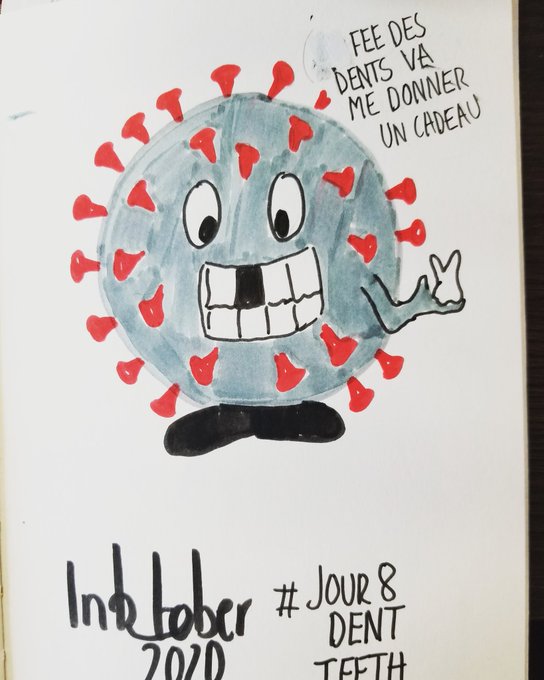 FEE DES
DENTS VA
ME DONNER
UN CADEAU
Inktober
2020
# JOUR 8
DENT
TEETH